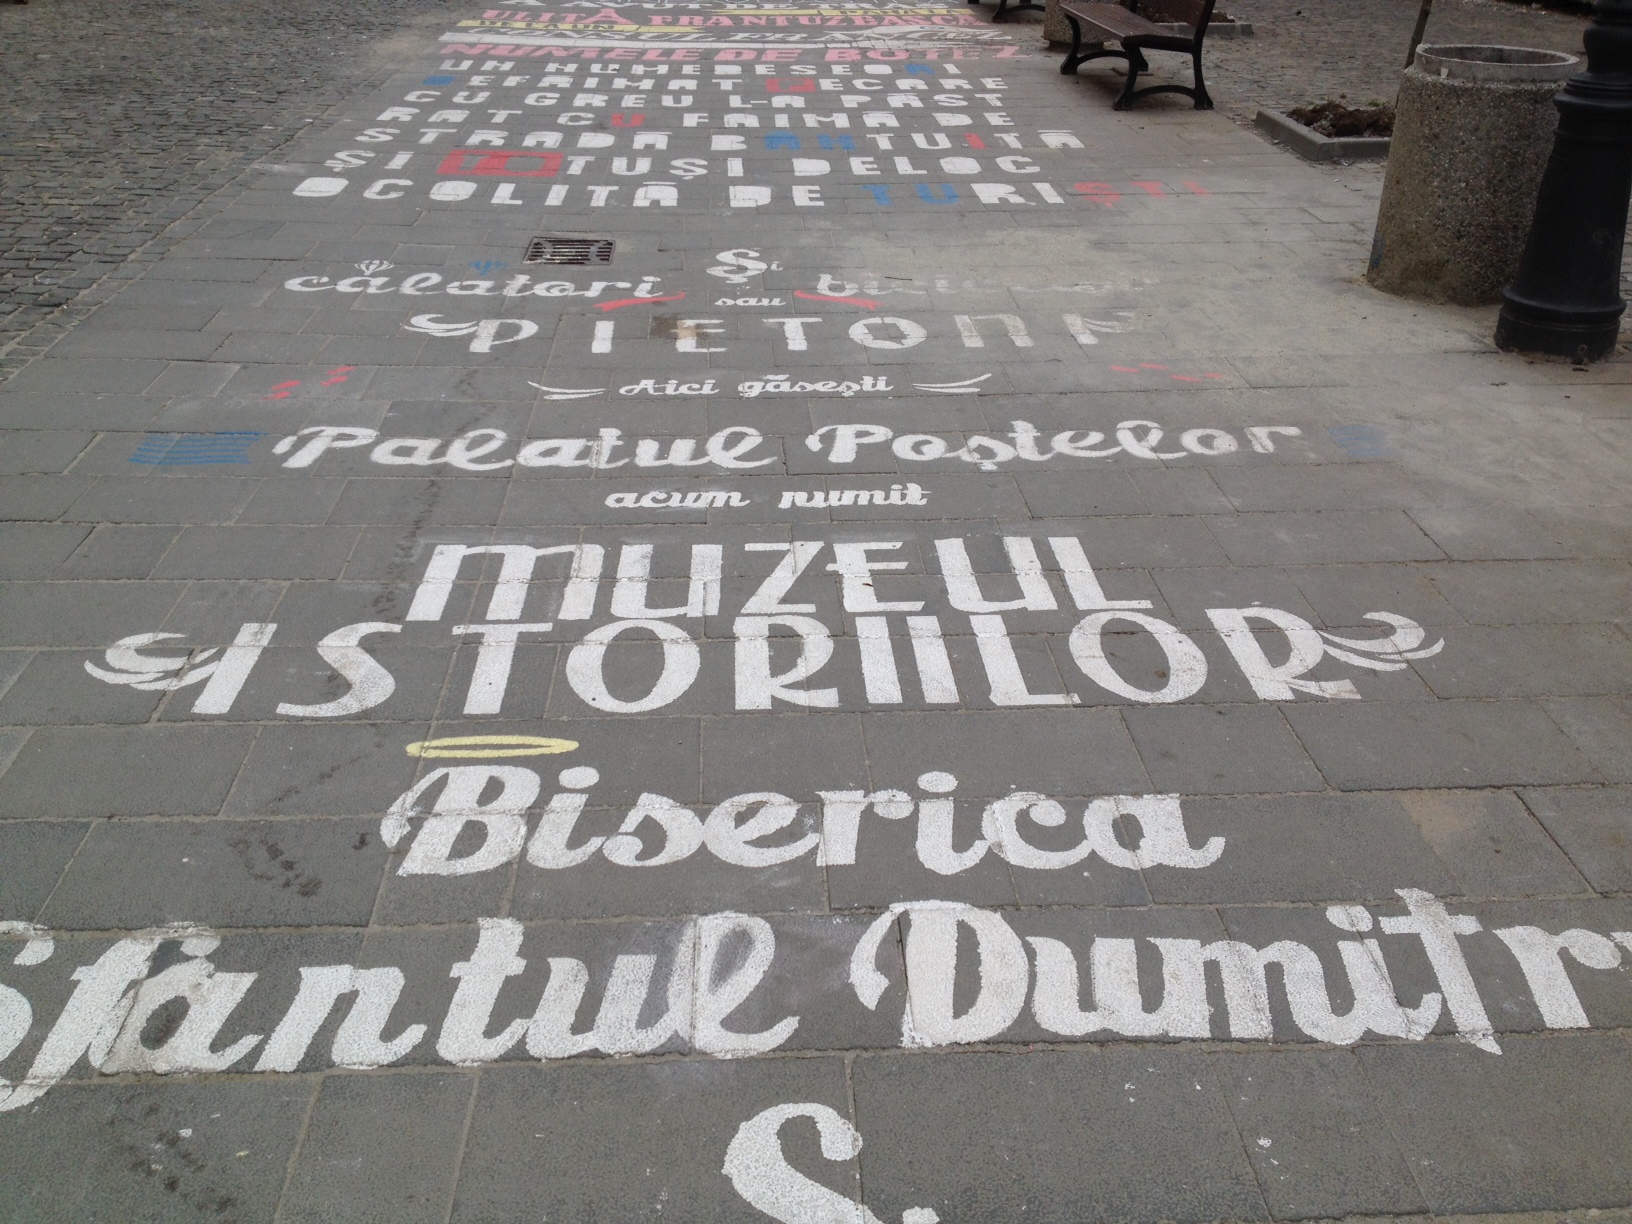 A AVUT DE TRAS
ULIȚA FRANȚUZEASCĂ
NUMELE DE BOTEZ
UN NUME DESEORI
DEFĂIMAT PE CARE
CU GREU L-A PĂST
RAT CU FAIMA DE
STRADĂ BÂNTUITĂ
ȘI TOTUȘI DELOC
OCOLITĂ DE TURIȘTI
călători și
sau
PIETONI
Aici găsești
Palatul Poștelor
acum numit
MUZEUL
ISTORIILOR
Biserica
Sfântul Dumitr
Ș